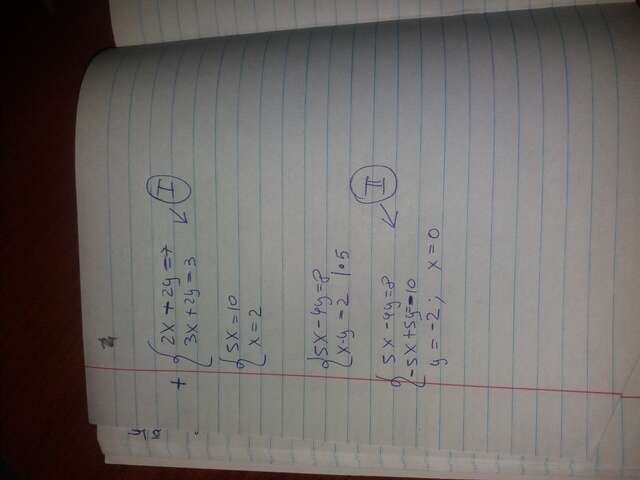 + { 2x + 2y = 7
3x + 2y = 3
I
{ 5x = 10
x = 2
{ 5x - 4y = 8
x - y = 2 | • 5
II
{ 5x - 4y = 8
-5x + 5y = -10
y = -2 ; x = 0